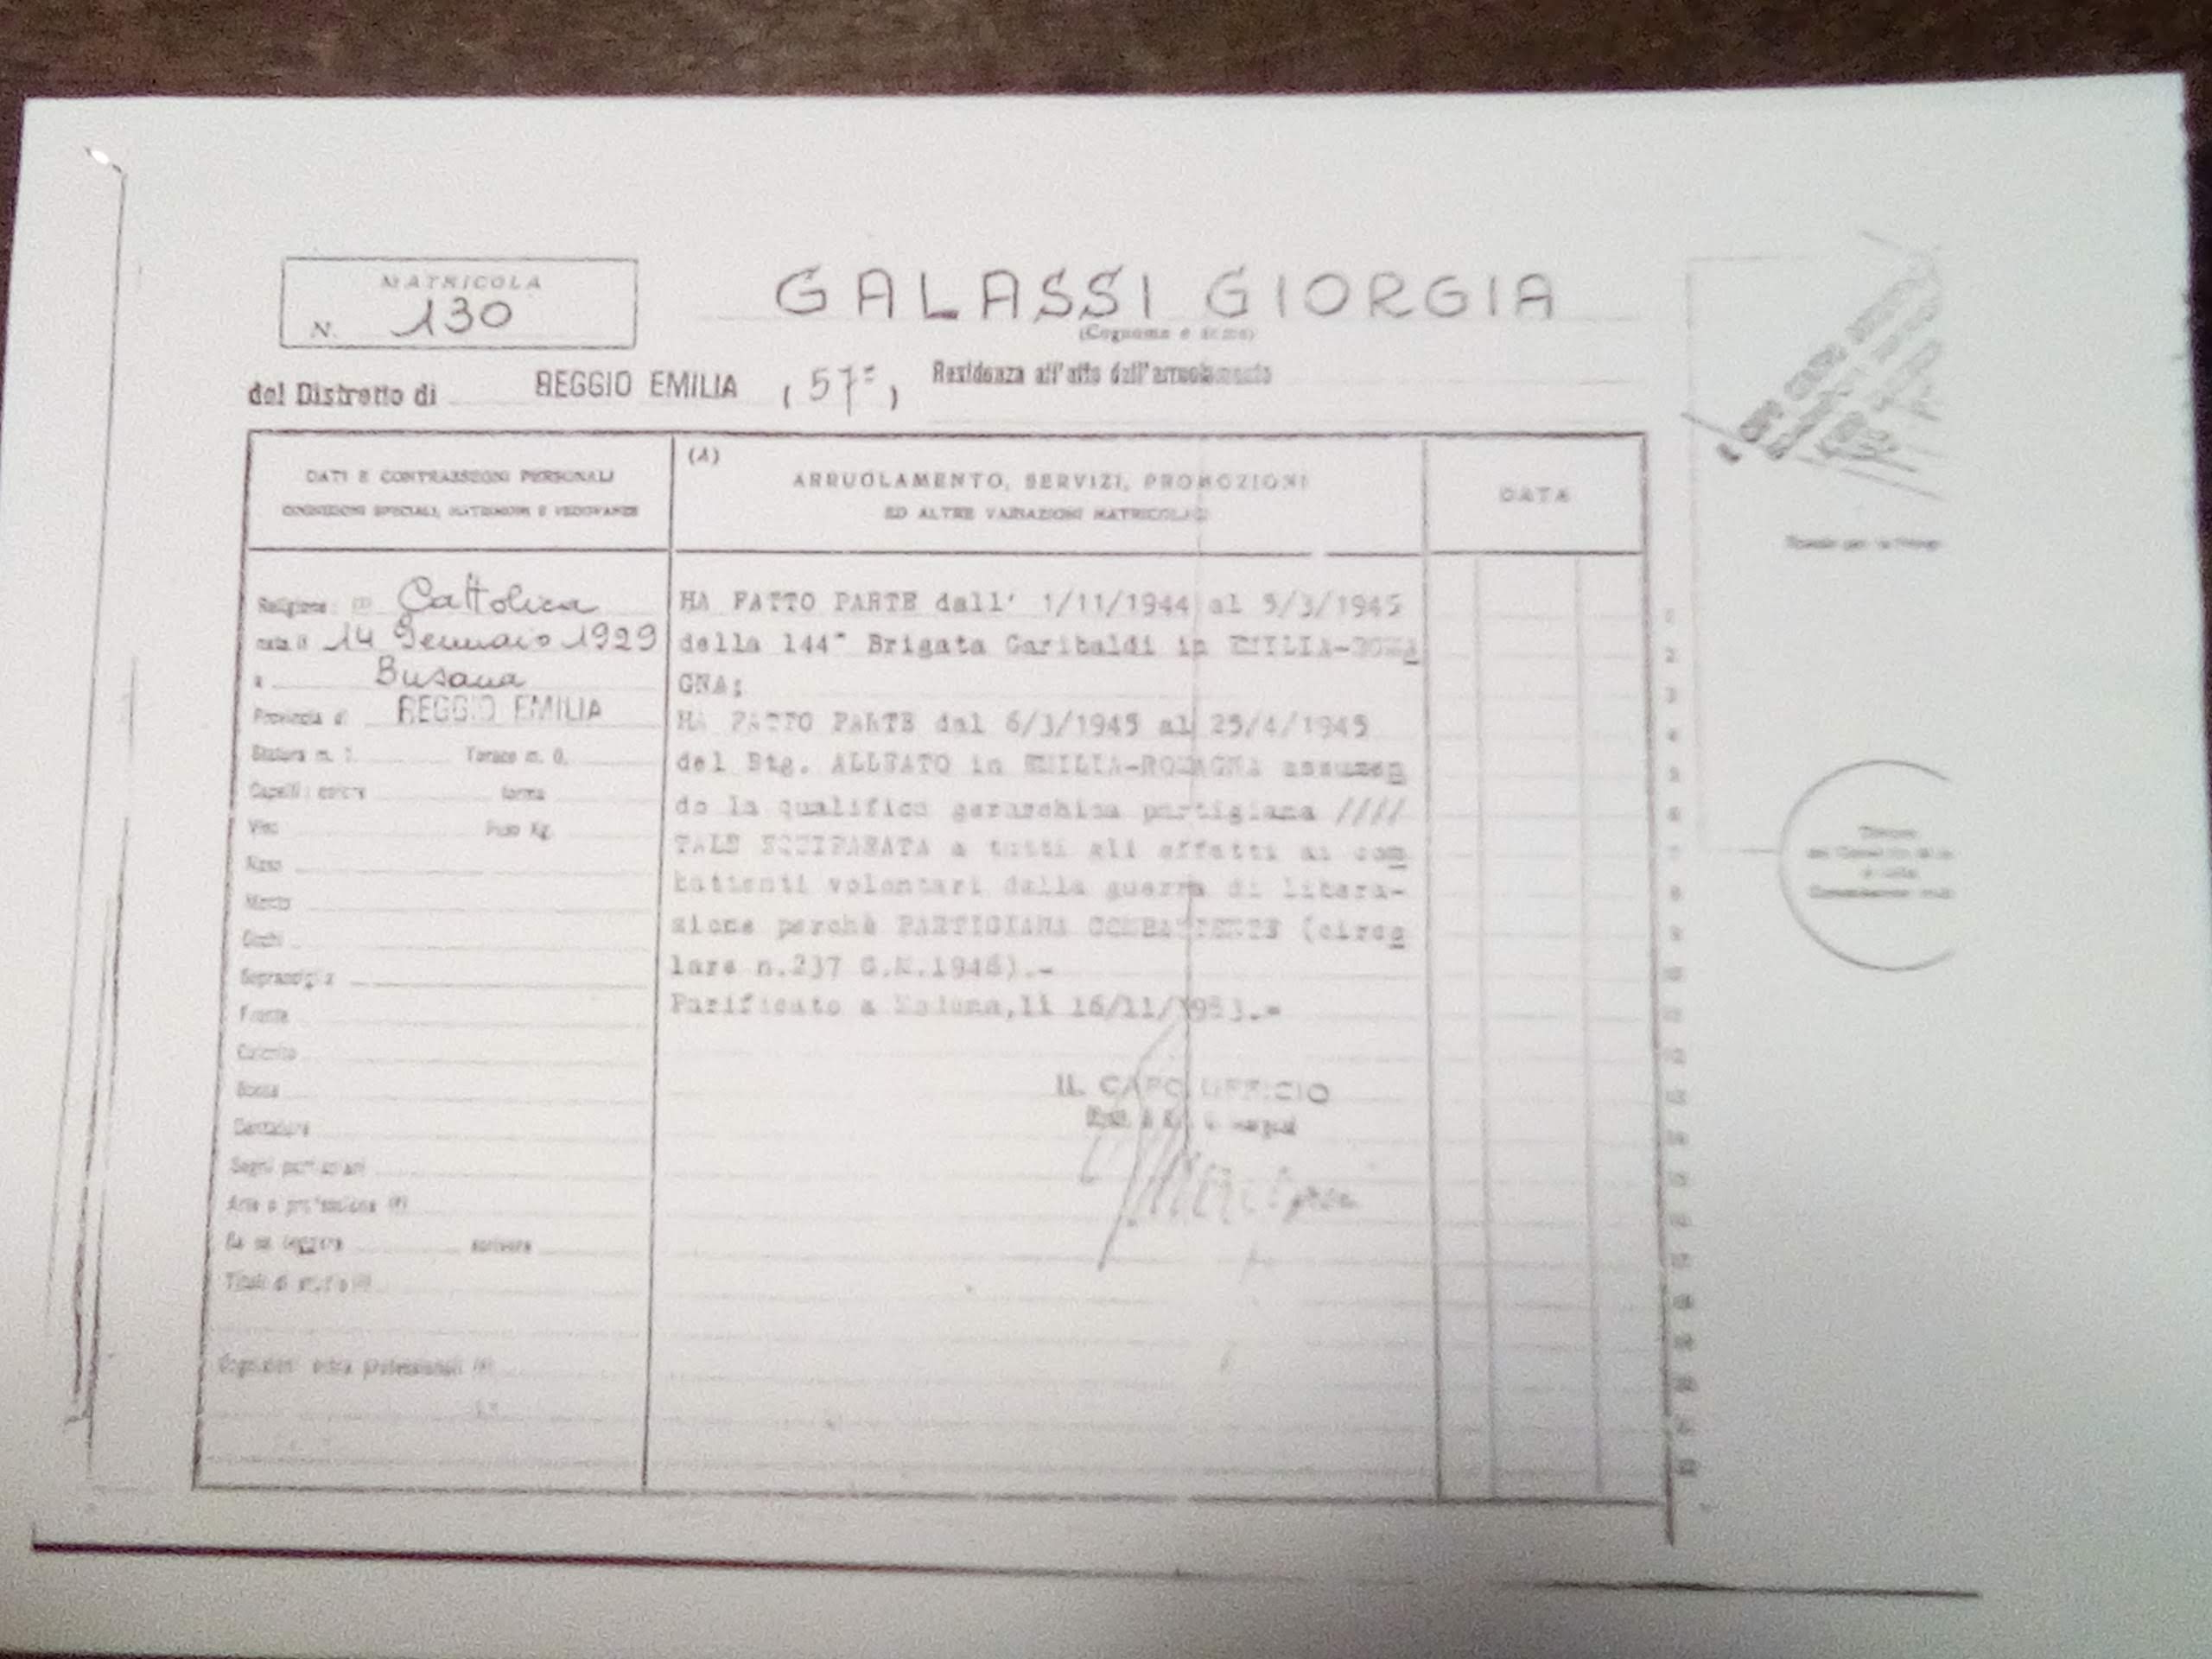 MATRICOLA
N. 130
GALASSI GIORGIA
(Cognome e nome)
del Distretto di REGGIO EMILIA (57=)
Residenza all'atto dell'arruolamento
DATI E CONTRASSEGNI PERSONALI
CONDIZIONI SPECIALI, MATRIMONI E VEDOVANZE
(A)
ARRUOLAMENTO, SERVIZI, PROMOZIONI
ED ALTRE VARIAZIONI MATRICOLARI
DATA
Religione Cattolica
nata il 14 Gennaio 1929
a Busana
Provincia di REGGIO EMILIA
Statura m. 1. Torace m. 0.
Capelli: colore forma
Viso Peso Kg.
Naso
Mento
Occhi
Sopracciglia
Fronte
Colorito
Bocca
Dentatura
Segni particolari
Arte o professione
Sa se leggere scrivere
Titolo di studio
Cognizioni extra professionali
HA FATTO PARTE dall' 1/11/1944 al 5/3/1945
della 144ˆ Brigata Garibaldi in EMILIA-ROMA
GNA;
HA FATTO PARTE dal 6/3/1945 al 25/4/1945
del Btg. ALLEATO in EMILIA-ROMAGNA assumen
do la qualifica gerarchica partigiana ////
TALE EQUIPARATA a tutti gli effetti ai com
battenti volontari della guerra di libera-
zione perchè PARTIGIANA COMBATTENTE (circo
lare n.237 G.M.1946).-
Parificato a Modena, li 16/11/1953.-
IL CAPO UFFICIO
1
2
3
4
5
6
7
8
9
10
11
12
13
14
15
16
17
18
19
20
21
22